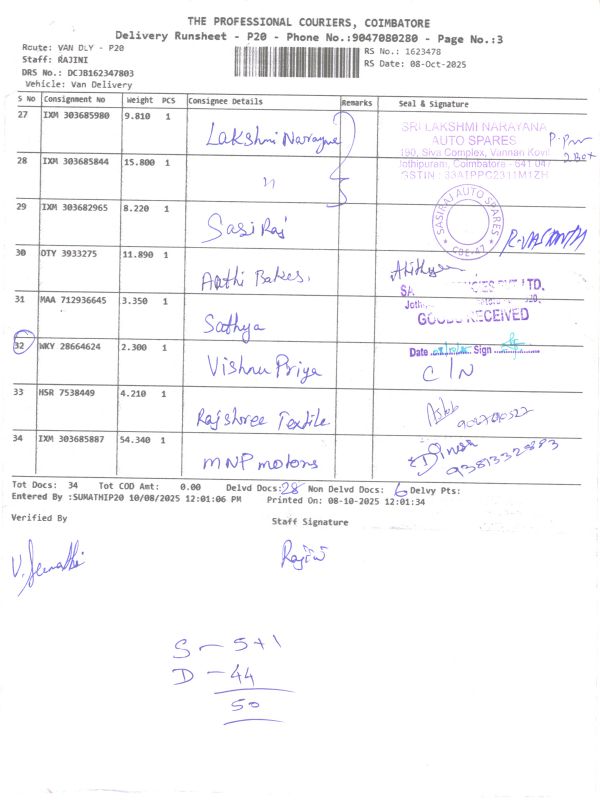 THE PROFESSIONAL COURIERS, COIMBATORE
Delivery Runsheet - P20 - Phone No.:9047080280 - Page No.:3
Route: VAN DLY - P20
RS No.: 1623478
Staff: RAJINI
RS Date: 08-Oct-2025
DRS No.: DCJB162347803
Vehicle: Van Delivery
S No Consignment No Weight PCS Consignee Details Remarks Seal & Signature
27 IXM 303685980 9.810 1 Lakshmi Narayna
SRI LAKSHMI NARAYANA
AUTO SPARES
190, Siva Complex, Vannan Kovil
Jothipuram, Coimbatore - 641 047
2 Box
28 IXM 303685844 15.800 1 "
29 IXM 303682965 8.220 1 Sasi Raj
SASIRAJ AUTO SPARES
CBE-47
R. VASANTH
30 OTY 3933275 11.890 1 Arthi Bakes.
31 MAA 712936645 3.350 1 Sathya
PVT LTD.
GOODS RECEIVED
Date Sign
32 WKY 28664624 2.300 1 Vishnu Priya C/N
33 HSR 7538449 4.210 1 Rajshree Textile
34 IXM 303685887 54.340 1 MNP motors Dinesh
Tot Docs: 34 Tot COD Amt: 0.00 Delvd Docs: 28 Non Delvd Docs: 6 Delvy Pts:
Entered By :SUMATHIP20 10/08/2025 12:01:06 PM Printed On: 08-10-2025 12:01:34
Verified By
Staff Signature
Rajini
S - 5+1
D - 44
50